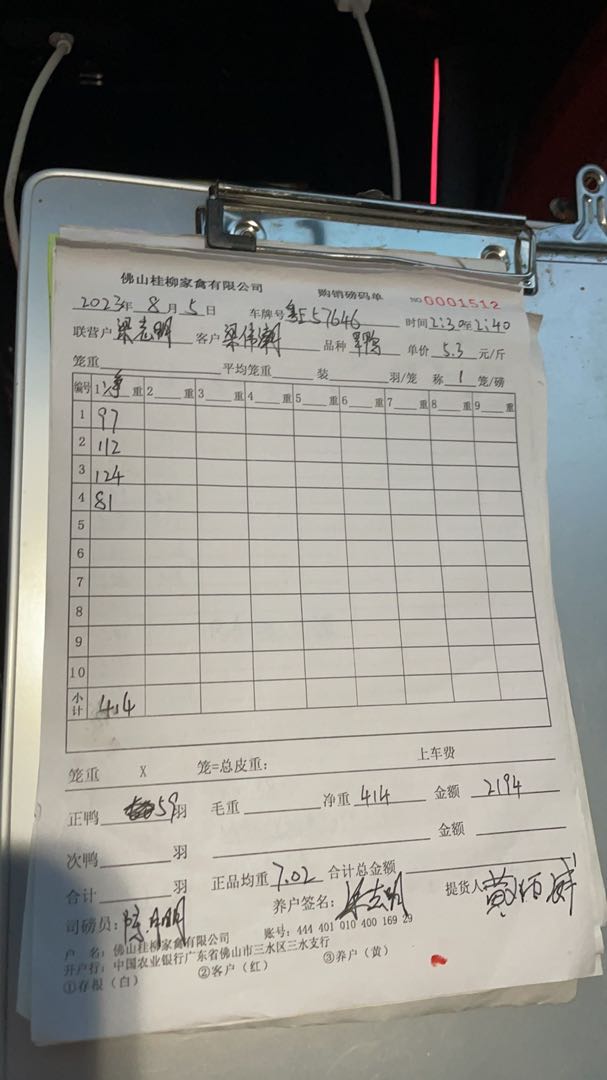 佛山桂柳家禽有限公司 购销磅码单 NO 0001512
2023年 8月 5日 车牌号 粤E57646 时间2:30至2:40
联营户 梁志明 客户 梁伟潮 品种 单价 5.3 元/斤
笼重 平均笼重 装 羽/笼 称 1 笼/磅
编号 1 净 重 2 重 3 重 4 重 5 重 6 重 7 重 8 重 9 重
1 97
2 112
3 124
4 81
5
6
7
8
9
10
小计 414
笼重 X 笼=总皮重: 上车费
正鸭 59 羽 毛重 净重 414 金额 2194
次鸭 羽 金额
合计 羽 正品均重 7.02 合计总金额
司磅员: 养户签名: 梁志明 提货人
户 名: 佛山桂柳家禽有限公司 账号: 444 401 010 400 169 29
开户行: 中国农业银行广东省佛山市三水区三水支行
①存根(白) ②客户(红) ③养户(黄)